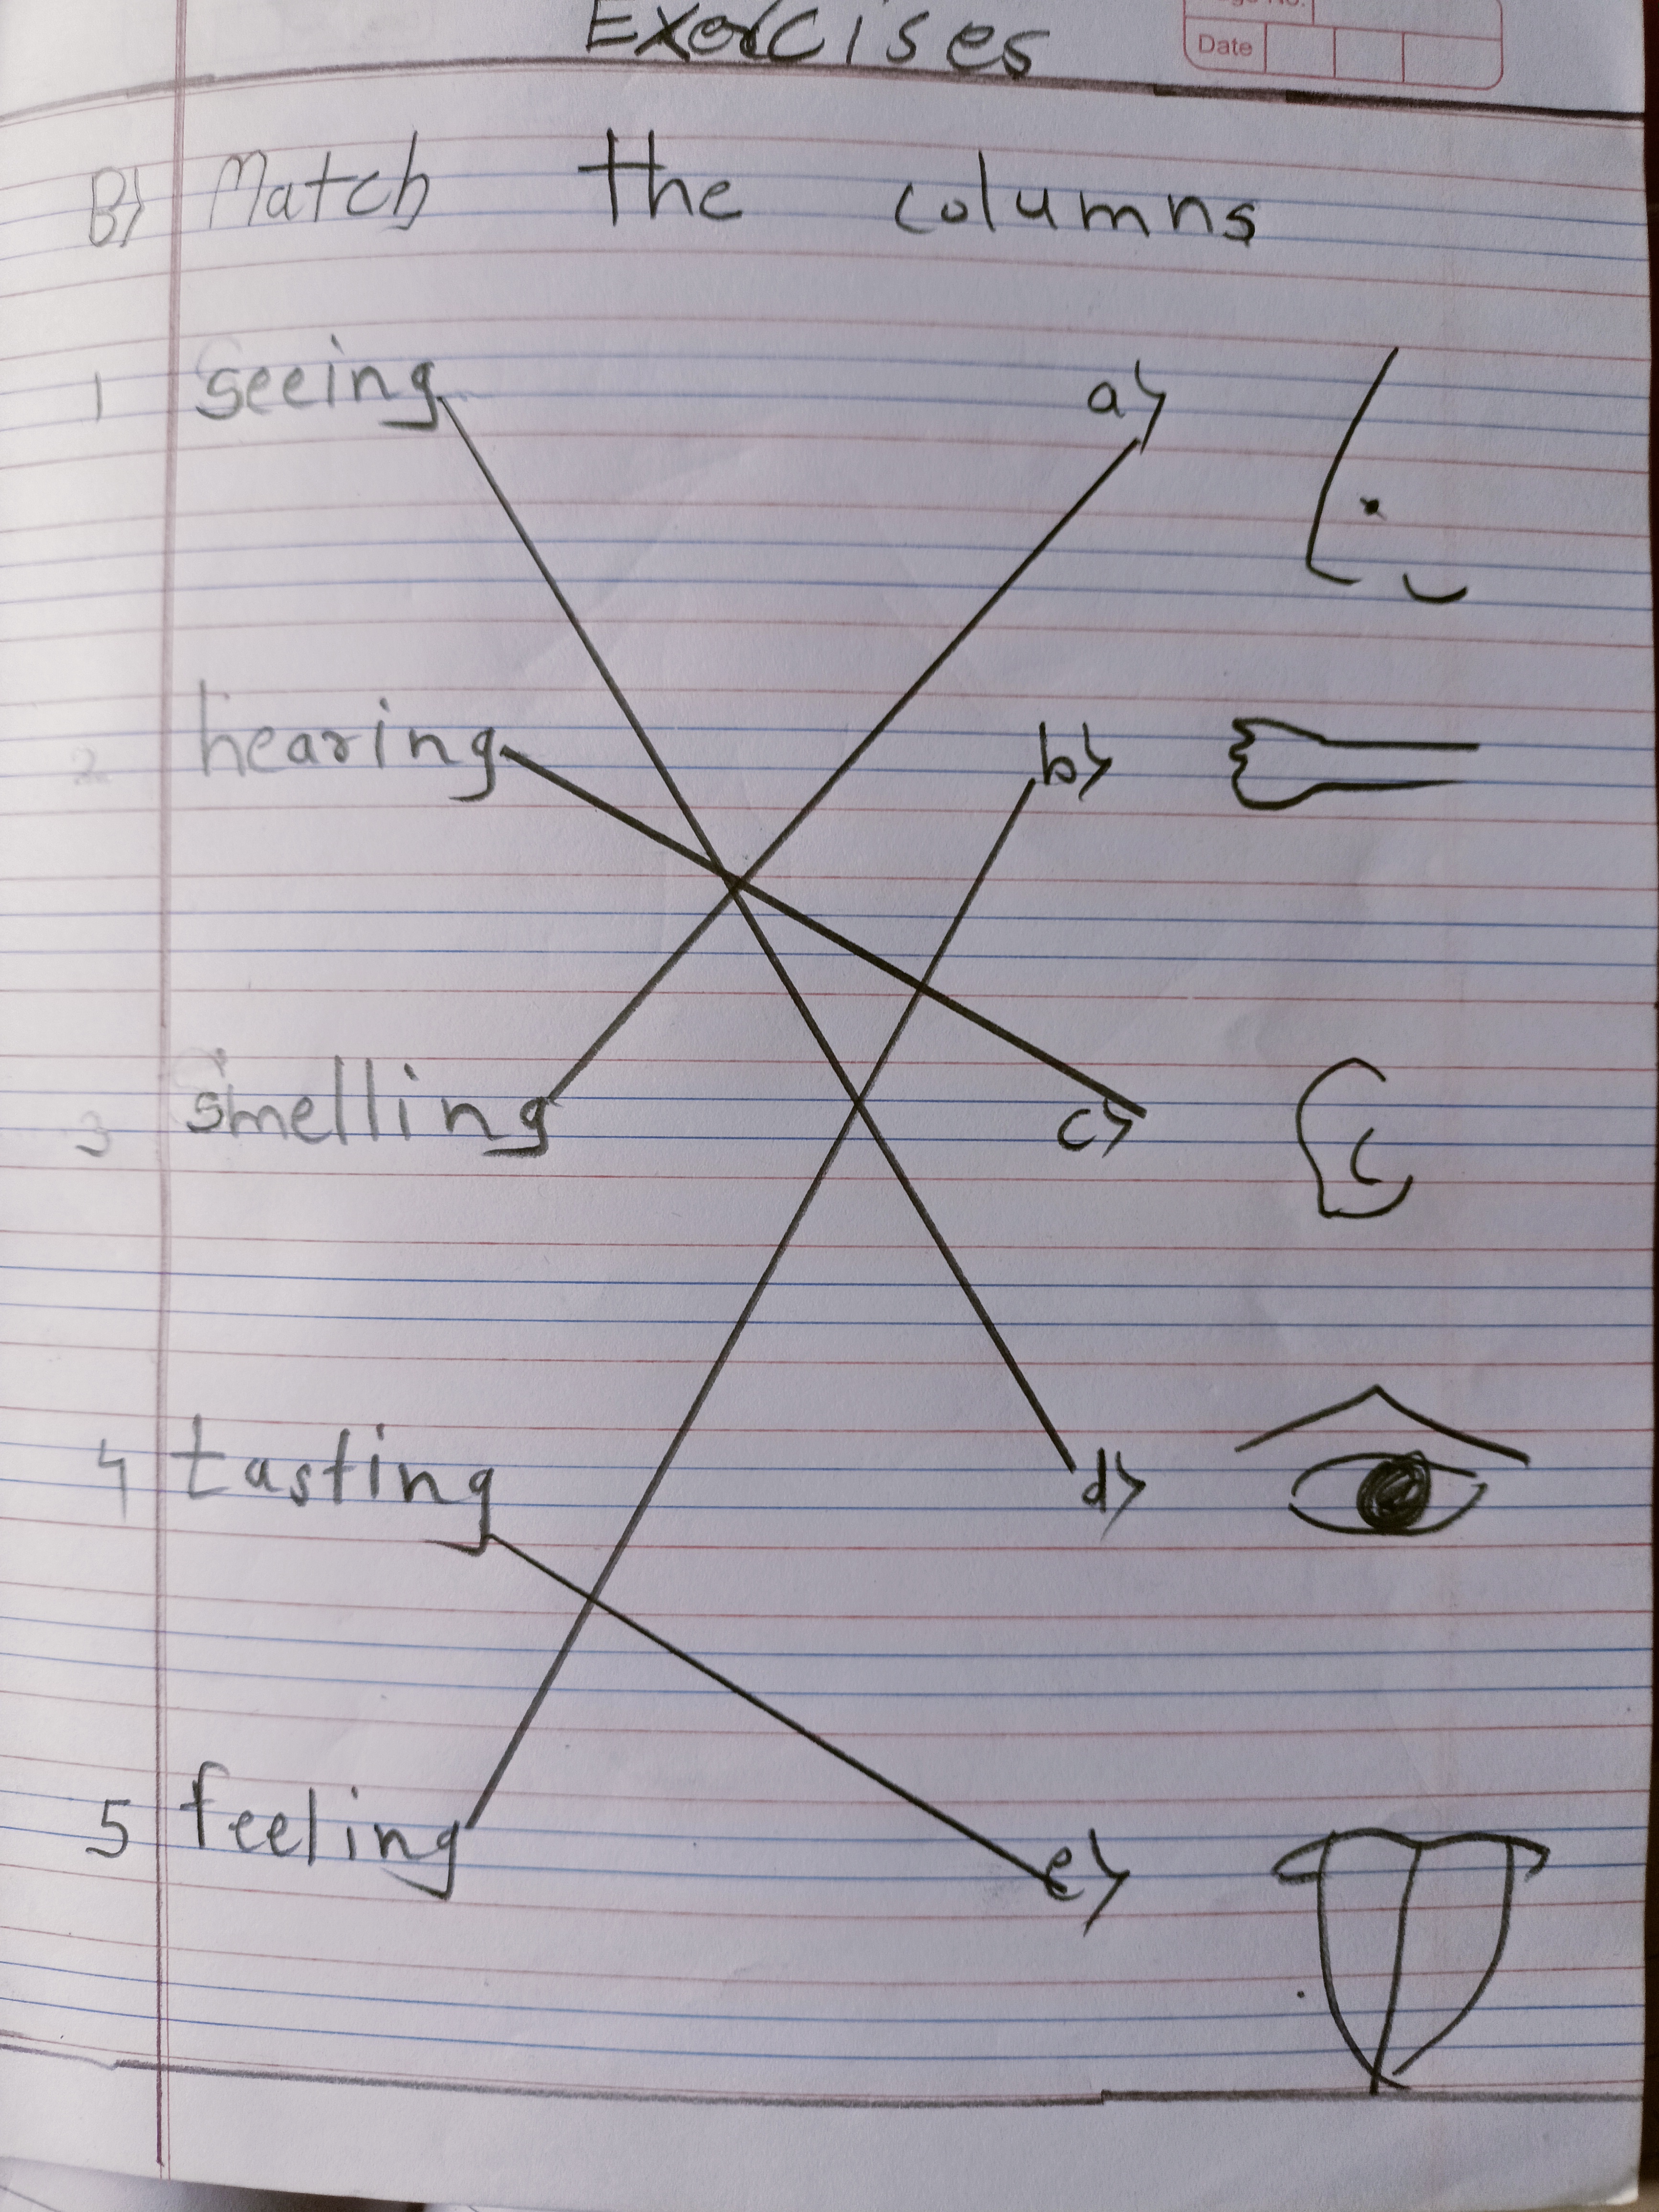 Exercises
Date
B) Match the columns
1 seeing a)
2 hearing b)
3 smelling c)
4 tasting d)
5 feeling e)